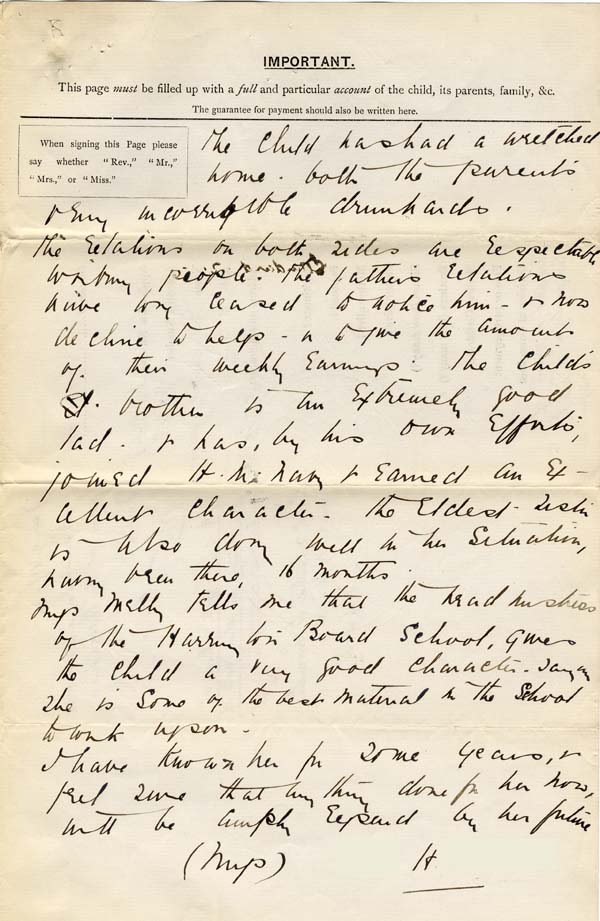 IMPORTANT.
This page must be filled up with a full and particular account of the child, its parents, family, &c.
The guarantee for payment should also be written here.
When signing this Page please
say whether "Rev.," "Mr.,"
"Mrs.," or "Miss."
The Child has had a wretched
home. both the parents
being incorrigible drunkards.
The relations on both sides are respectable
working people. The father's relations
have long ceased to notice him - & now
decline to help - or to give the amounts
of their weekly Earnings. The Child's
brother is an Extremely good
lad - & has, by his own Efforts,
joined H.M. Navy & Earned an Ex-
cellent Character. The Eldest Sister
is also doing well in her Situation,
having been there, 16 months.
Miss Melly tells me that the head mistress
of the Harrington Board School, gives
the child a very good character - saying
she is some of the best material in the School
to work upon.
I have known her for some years, &
feel sure that anything done for her now,
will be amply repaid by her future
(Miss) H